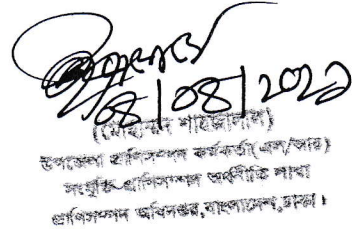 ০৪/০৪/২০২১
(মোহাম্মদ শাহজালাল)
উপজেলা প্রাণিসম্পদ কর্মকর্তা(এল/আর)
সংযুক্তি-প্রাণিসম্পদ অর্থনীতি শাখা
প্রাণিসম্পদ অধিদপ্তর,বাংলাদেশ,ঢাকা।